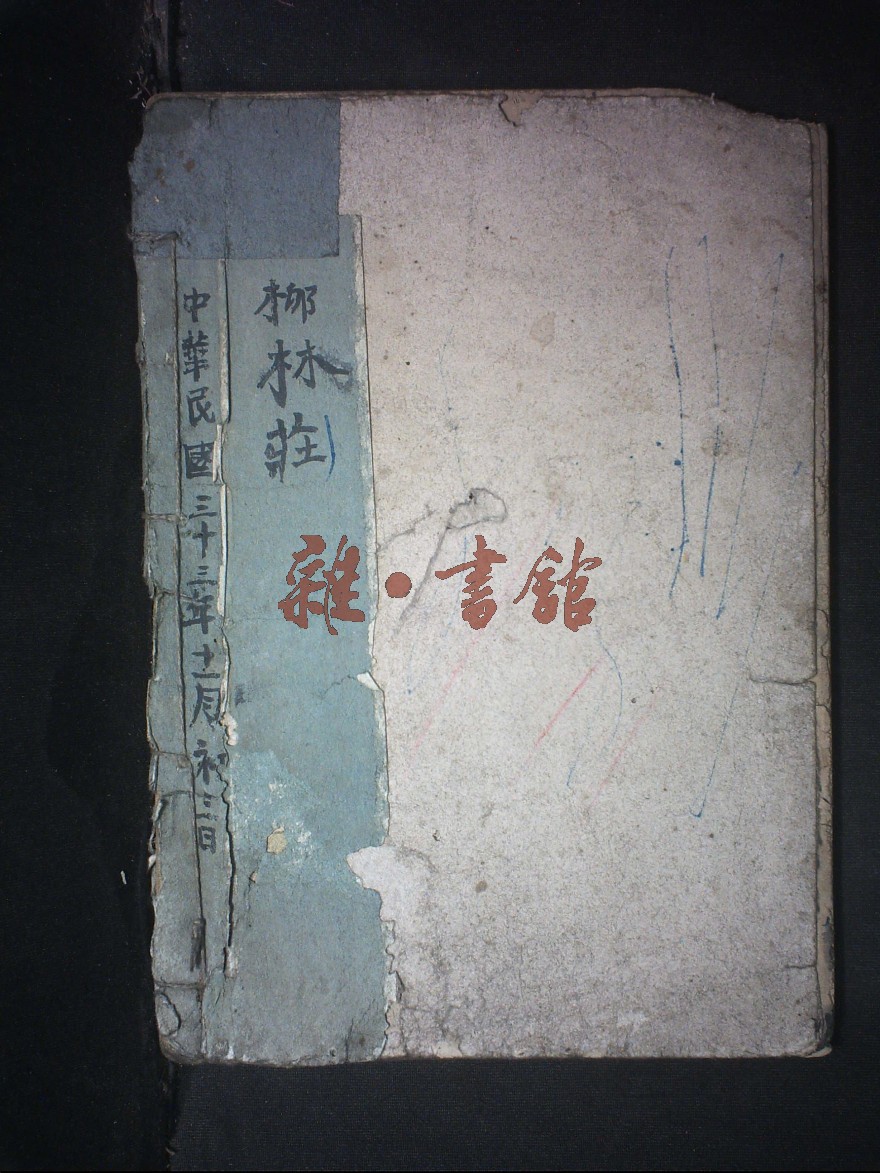 柳林莊
中華民國三十三年十一月初三日
雜·書館